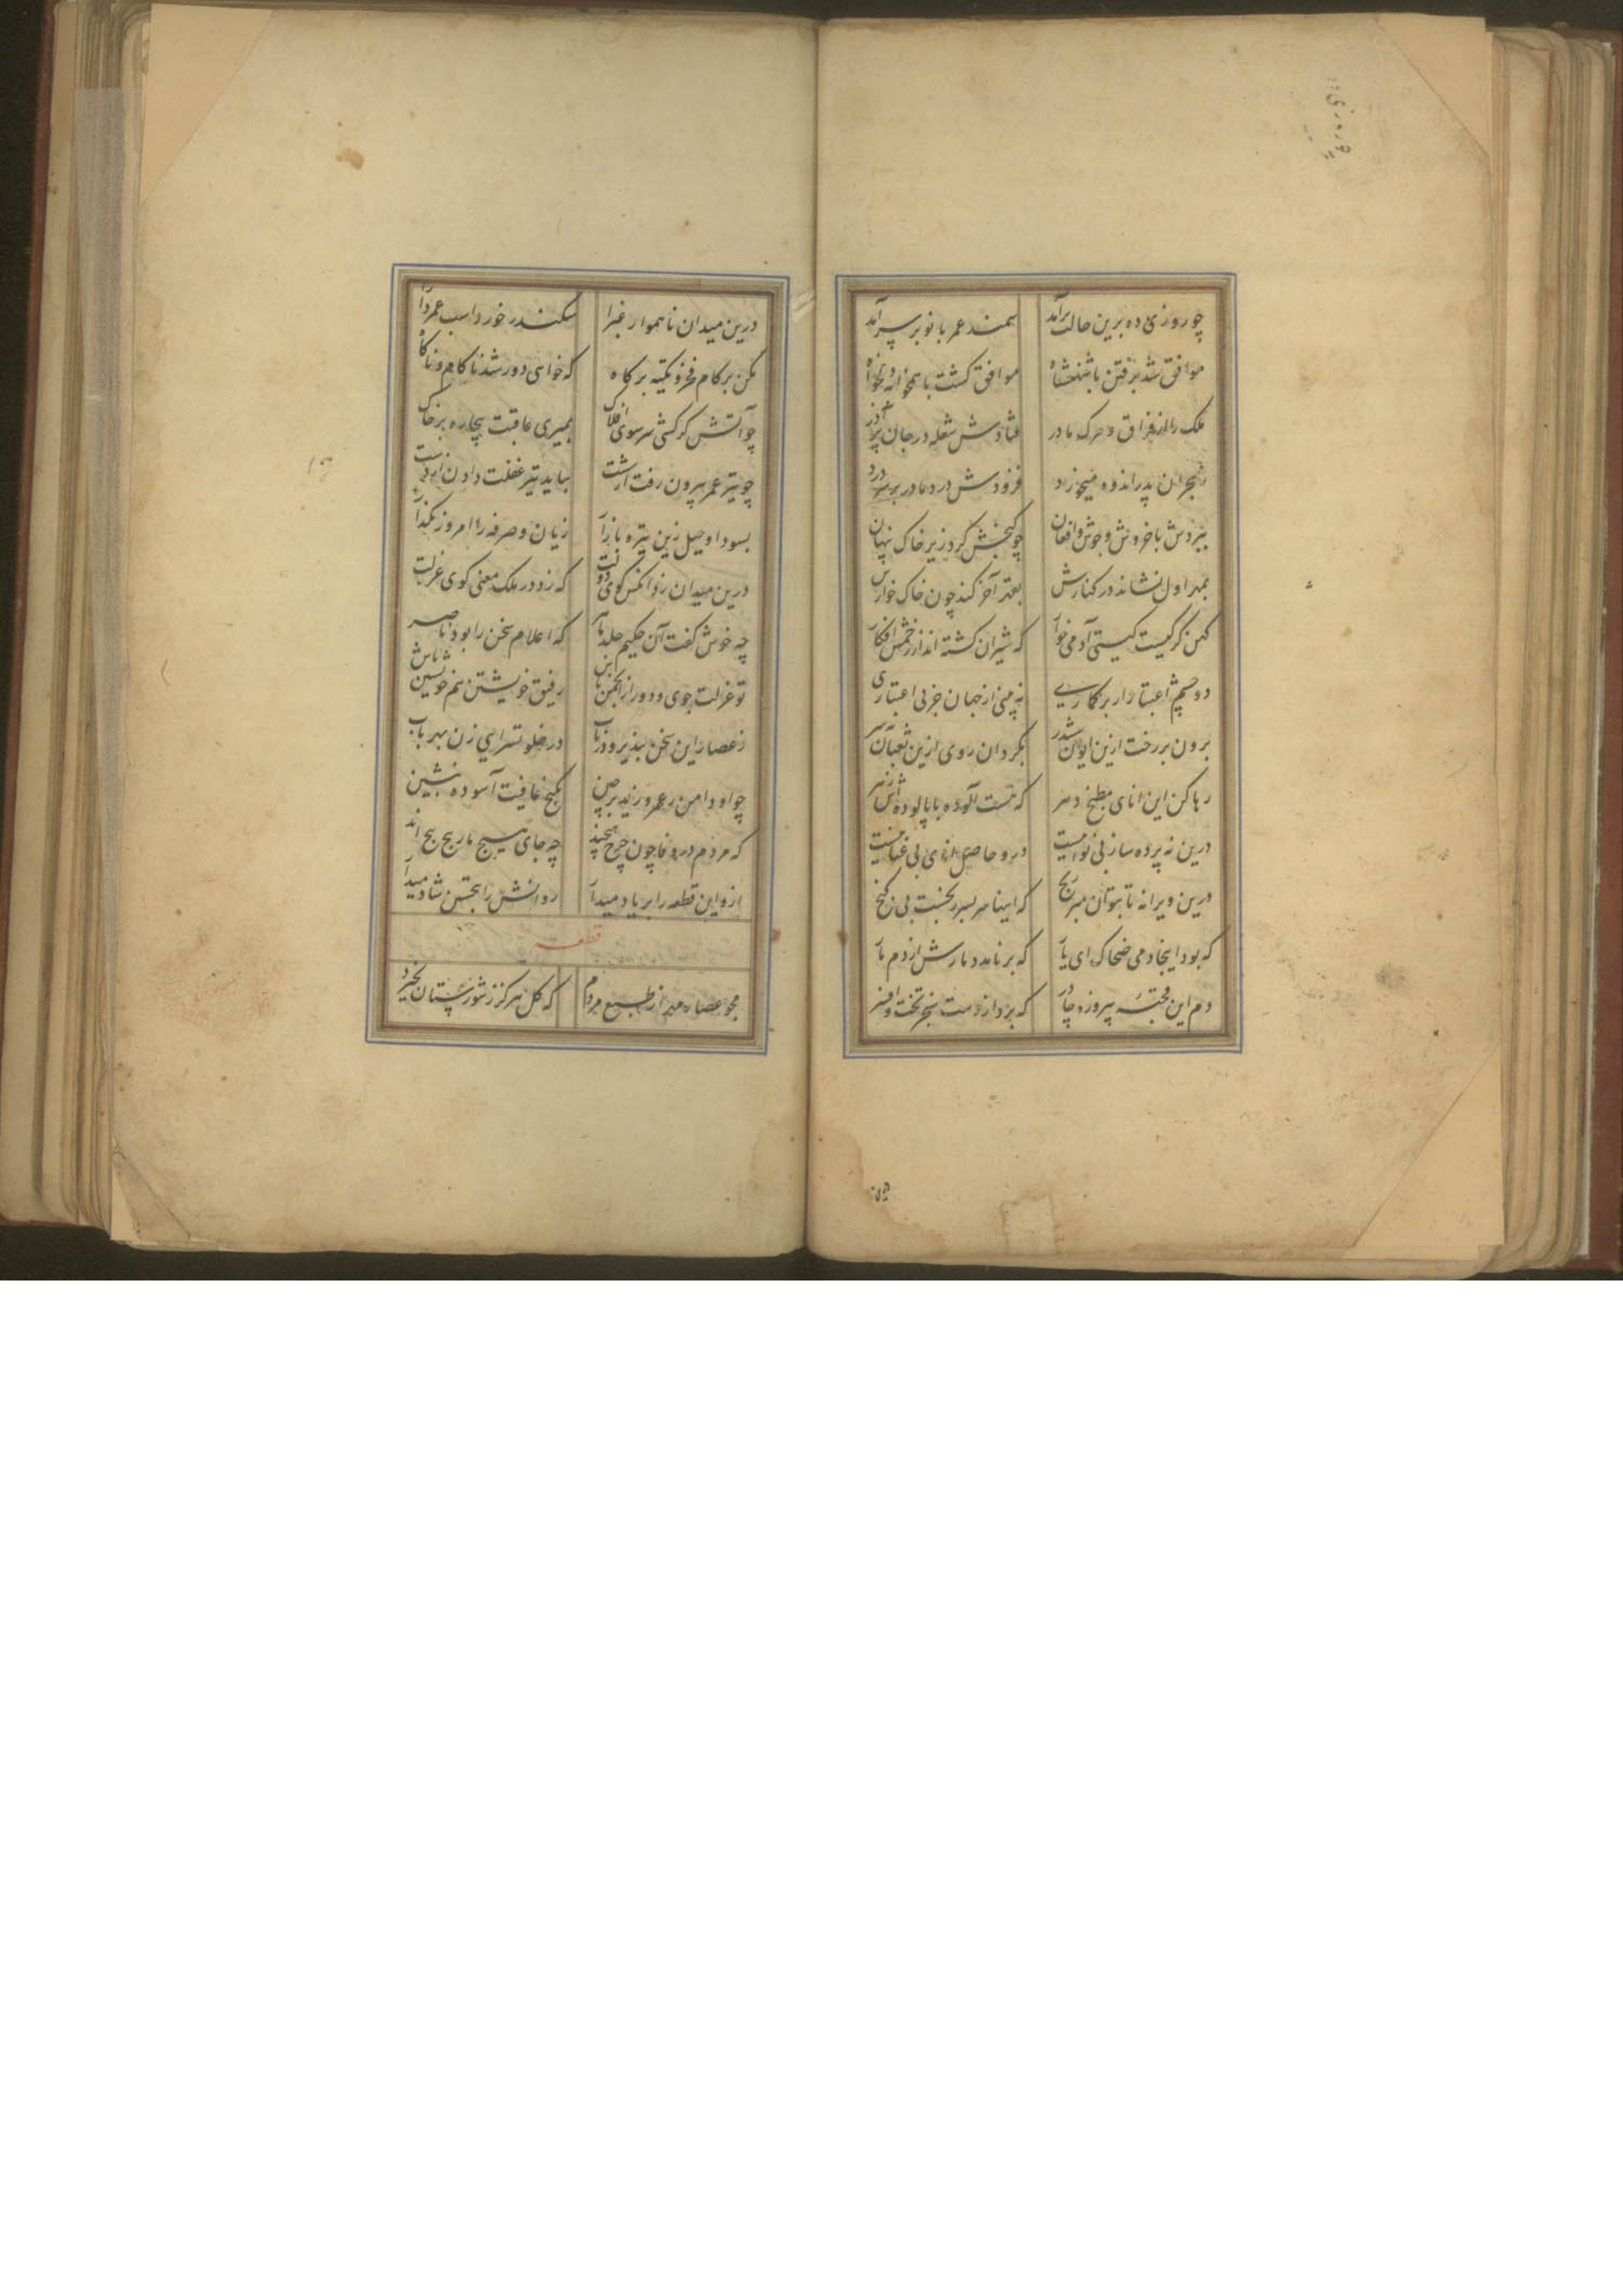 چو روزی ده برین حالت برآمد سمند عمر بانو بر سر آمد
موافق شد برفتن با شهنشاه موافق گشت با همخوانه دلخواه
ملک را از فراق و مرک مادر فتادش شعله در جان پر آذر
ز هجران پدر اندوه میخورد فزودش درد مادر بر سر درد
ببردش با خروش و جوش و افغان چو گنجش کرد زیر خاک پنهان
بمهر اول نشاند در کنارش بقهر آخر کند چون خاک خوارش
کهن گرگیست گیتی آدمی خوار که شیران گشته اند از زخمش افکار
دو چشم اعتبار ار برگماری نه بینی از جهان جز بی اعتباری
برون بر رخت ازین ایوان ششدر بگردان روی ازین ثعبان نه سر
رها کن این انای مطبخ دهر که هست آلوده با پالوده اش زهر
درین نه پرده ساز بی نواییست درو حاصل
درین ویرانه تا بتوان مبر رنج که اینا سربسر بی گنج
که بود اینجا دمی ضحاک ای یار که برنامد دمارش از دم مار
دم این پیروزه چادر که برد از دست سنجر تخت و افسر
درین میدان ناهموار غبرا سکندر خورد اسب عمر دارا
مکن بر کام فخر و تکیه بر گاه که خواهی دور شد ناکام و ناگاه
چو آتش گر کشی سر سوی افلاک بمیری عاقبت بیچاره بر خاک
چو تیر عمر بیرون رفت از شست بباید تیر غفلت دادن از دست
بسود او حیل زین تیره بازار زیان و صرفه را امروز بگذار
درین میدان زد آنکس گوی دولت که زد در ملک معنی گوی عزلت
چه خوش گفت آن حکیم که اعلام سخن را بود ناصر
تو عزلت جوی و دور از انجمن باش رفیق خویشتن هم خویشتن باش
ز عصار این سخن بپذیر و درخلوتسرای زن بهر باب
چو او دامن ز عمرو و زید برچین بکنج عافیت آسوده بنشین
که مردم در وفا چون چرخ هیچند چه جای هیچ
ازو این قطعه را بر یاد میدار روانش را بتحسین شاد میدار
قطعه
مجو عصار مهر از طبع مردم که گل هرگز ز شورستان نخیزد